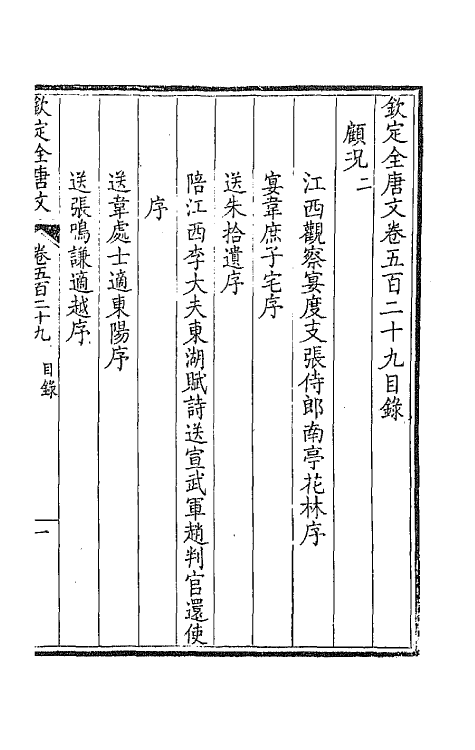 欽定全唐文卷五百二十九目錄
顧況二
江西觀察宴度支張侍郎南亭花林序
宴韋庶子宅序
送朱拾遺序
陪江西李大夫東湖賦詩送宣武軍趙判官還使
序
送韋處士適東陽序
送張鳴謙適越序
欽定全唐文 卷五百二十九 目錄 一